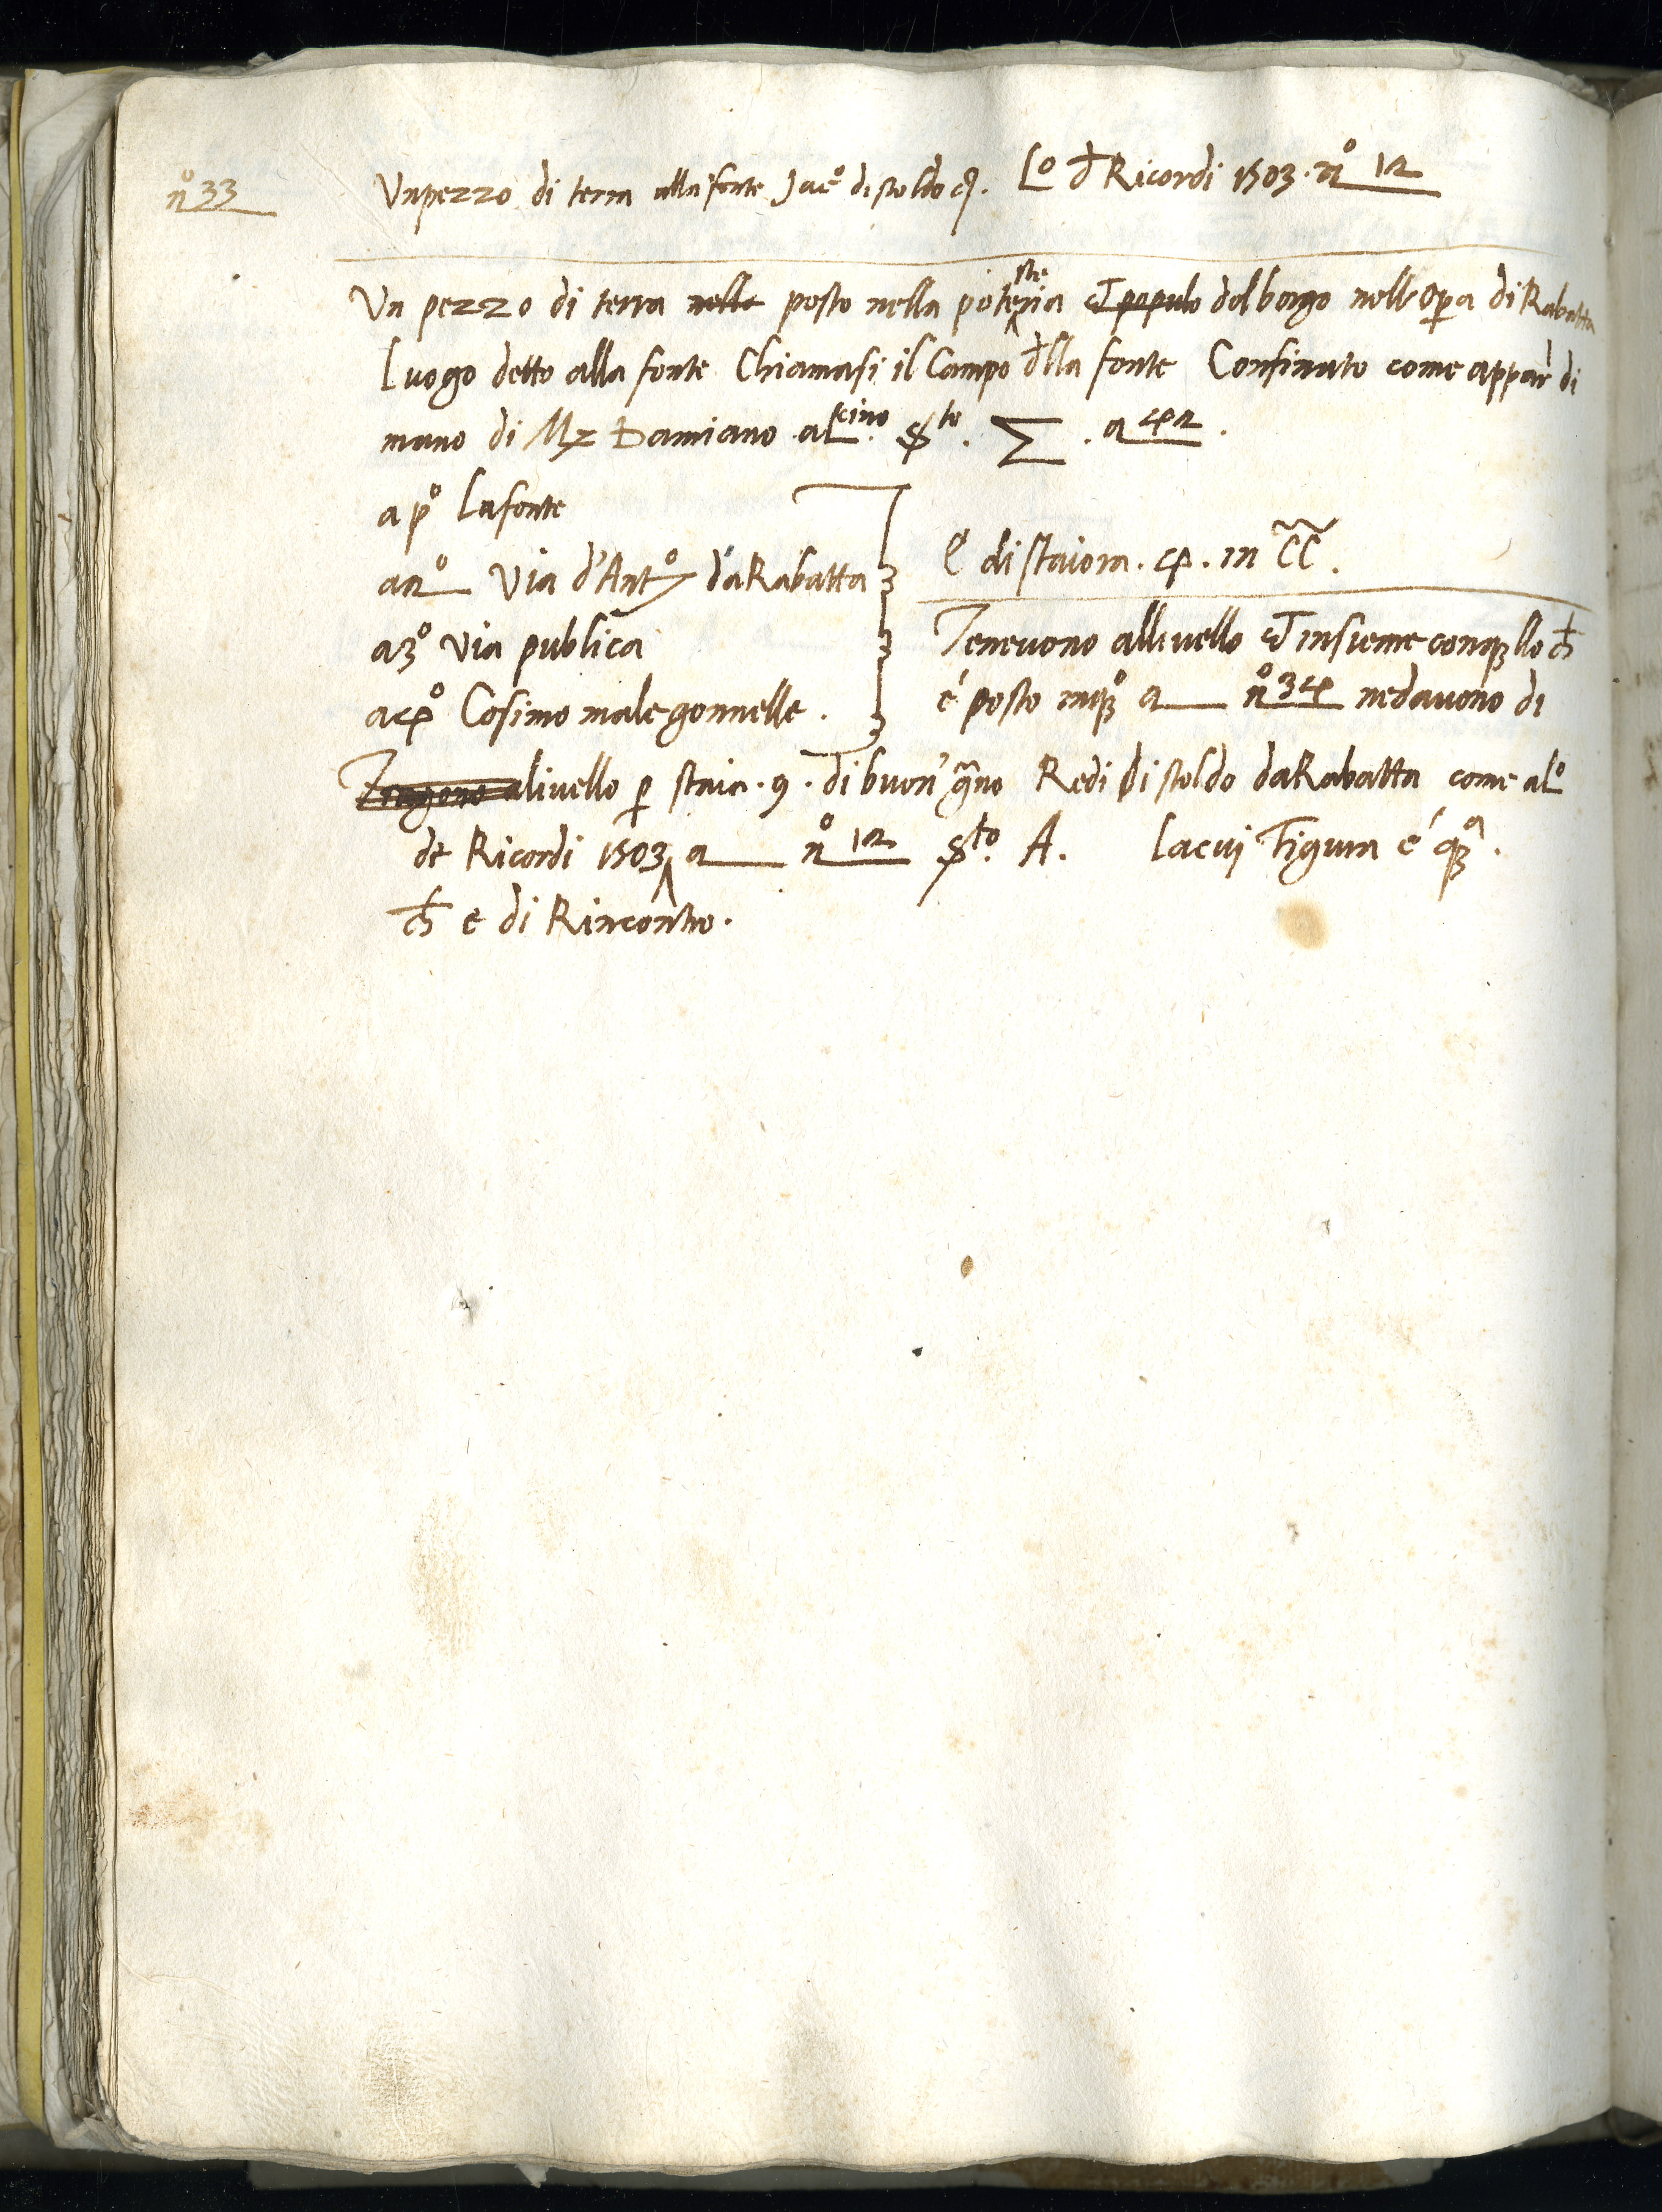 nº 33
Un pezzo di terra alla fonte Jacº di stoldo Lº đ Ricordi 1503. nº 12
Un pezzo di terra nelle posto nella potesteria & populo del borgo nell opa di Rabatta
Luogo detto alla fonte Chiamasi il Campo dlla fonte Confinato come appar di
mano di Mz Damiano al cino. Sto. Σ. a 42.
a pº La fonte
a 2º Via d'Antº da Rabatta
a 3º via publica
a 4º Cosimo malegonnelle.
E di staiora. 4. in CC.
Tenevono allivello & insieme con qllo ch
é posto in qº a nº 34 ne davono di
Tengono alivello p staia. 9. di buon' gno Redi di stoldo da Rabatta come al lº
de Ricordi 1503 a nº 12 Sto. A. La cui Figura é qª.
ch e di Rincontro.